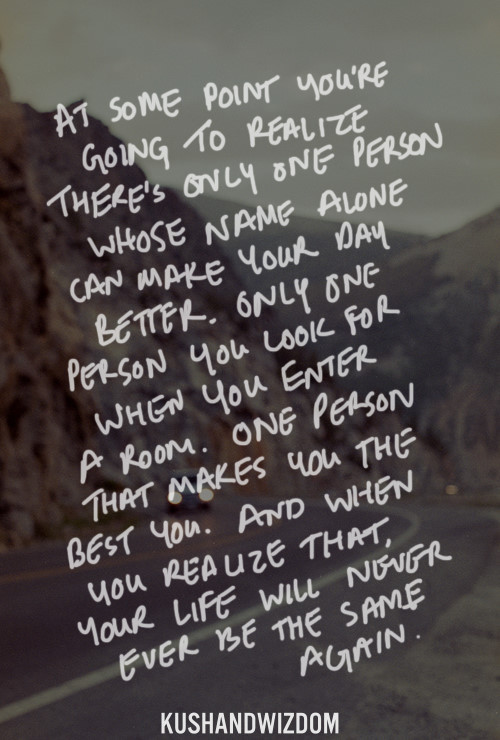 AT SOME POINT YOU'RE
GOING TO REALIZE
THERE'S ONLY ONE PERSON
WHOSE NAME ALONE
CAN MAKE YOUR DAY
BETTER. ONLY ONE
PERSON YOU LOOK FOR
WHEN YOU ENTER
A ROOM. ONE PERSON
THAT MAKES YOU THE
BEST YOU. AND WHEN
YOU REALIZE THAT,
YOUR LIFE WILL NEVER
EVER BE THE SAME
AGAIN.
KUSHANDWIZDOM